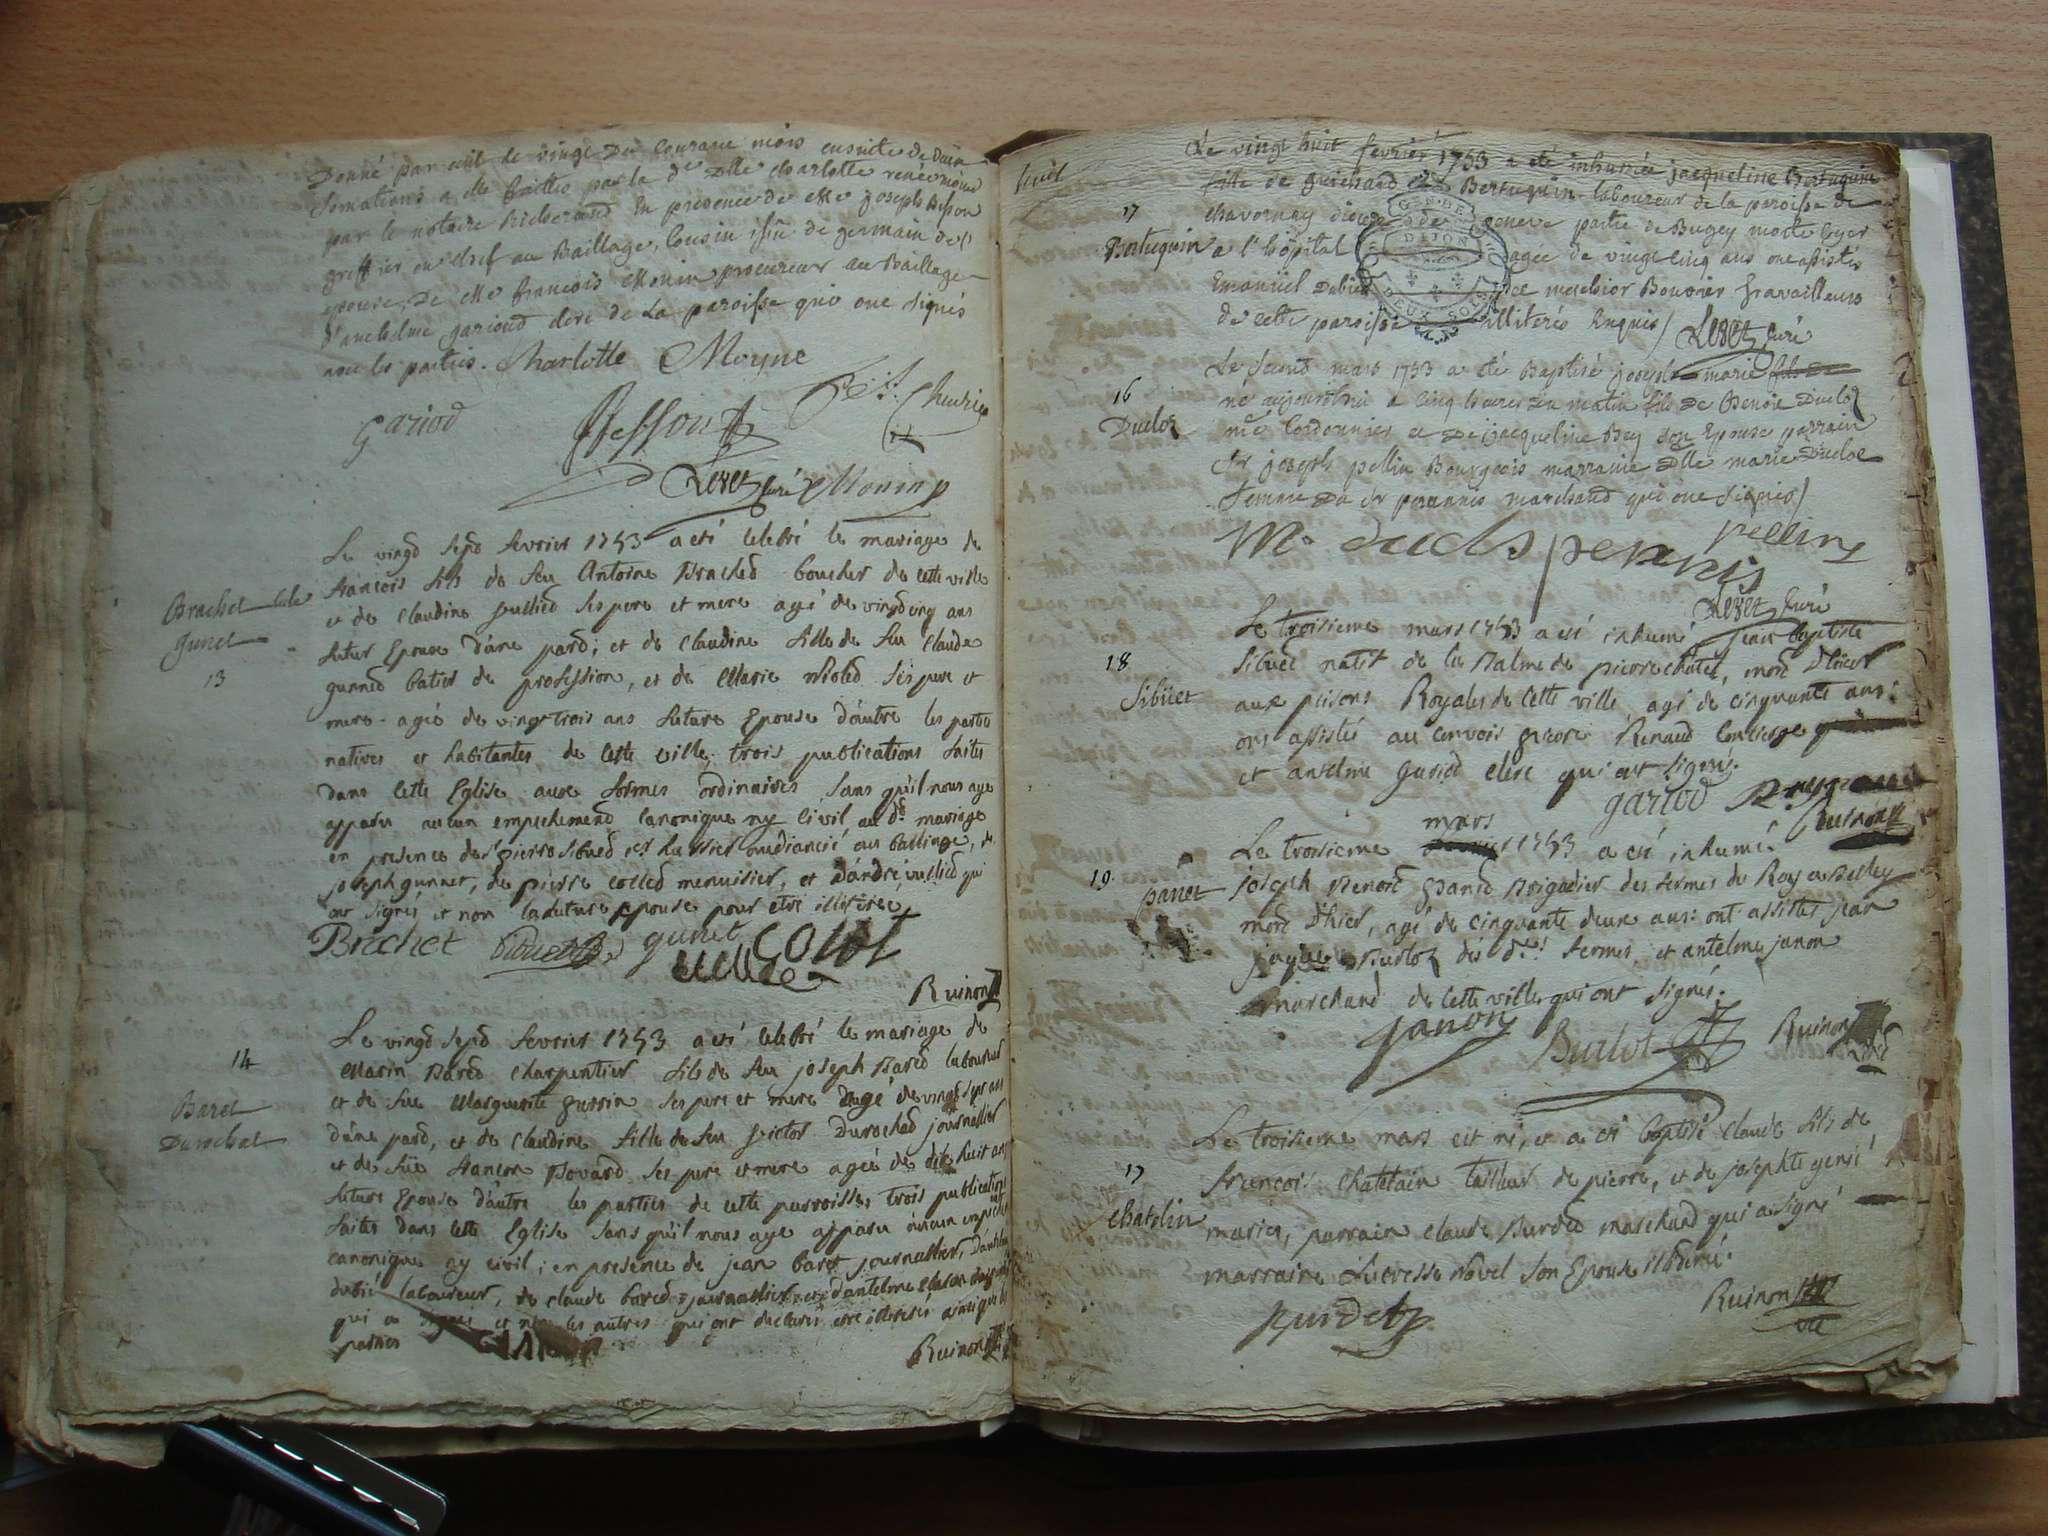 Donné par
Somations a elle faittes par la de Dlle charlotte renée moine
par le notaire Richerand En presence de Me joseph Besson
greffier en chef au Baillage, Cousin issu de germain de l'
epouse, De Me françois Monin procureur au Baillage
d'anthelme gariod clerc de La paroisse qui ont signés
avec les parties. Charlotte Moyne
Gariod Besson
Levet Curé Monin
Le vingt sept fevrier 1753 a eté celebré le mariage de
françois fils de feu Antoine Brachet boucher de cette ville
et de Claudine ses pere et mere agé de vingt cinq ans
Brachet
Gunet
13
futur Epoux d'une part; et de Claudine fille de feu Claude
gunnet batier de profession, et de Marie violet ses pere et
mere agée de vingt trois ans future Epouse d'autre les parties
natives et habitantes de cette ville, trois publications faites
dans cette Eglise aux formes ordinaires sans qu'il nous aye
apparu aucun empechement canonique ny civil au dt mariage
en presence de sr pierre sibuet huissier audiancié au balliage, de
joseph gunnet, de pierre collet menuisier, et d'andré vulliet qui
ont signés et non la future epouse pour etre illiterée
Brachet gunet COLOT
Ruinon
14
Baret
Durochat
Le vingt sept fevrier 1753 a eté celebré le mariage de
Marin Baret charpentier fils de feu joseph Baret laboureur
et de fue Marguerite ses pere et mere agé de vingt sept ans
d'une part, et de Claudine fille de feu victor Durochat journallier
et de fue françoise Bovard ses pere et mere agée de dix huit ans
future Epouse d'autre les parties de cette parroisse, trois publications
faites dans cette Eglise sans qu'il nous aye apparu aucun
canonique ny civil; en presence de jean baret journallier,
laboureur, de claude baret journallier et d'antelme
qui a signé et non les autres qui ont declarés etre illiterés ainsi que les
parties
Ruinon
Le vingt huit fevrier 1753 a eté inhumée jacqueline Bertuquin
fille de Bertuquin laboureur de la paroisse de
17
Bertuquin
chavornay diocese de geneve partie de Bugey morte hyer
a l'hôpital agée de vingt cinq ans ont assistés
GEN. DE
DIJON
DEUX SOLS
Emanuel Dubié melchior Bouvier travailleurs
de cette paroisse illiterés Enquis
Levet Curé
16
Duclos
Le second mars 1753 a eté Baptisé joseph marie
né aujourd'hui a cinq heures du matin fils de Benoit Duclos
me Cordonnier et De jacqueline Bey son Epouse parrain
Sr joseph pellin Bourgeois marraine Dlle marie Duclos
femme du Sr perannis marchand qui ont signés
M. duclos perannis pellin
Levet Curé
18
Sibuet
Le troisieme mars 1753 a eté inhumé jean baptiste
Sibuet natif de la Balme de pierre châtel, mort d'hier
aux prisons Royales de Cette ville, agé de cinquante ans:
ont assistés au convois Renaud Concierge
et anselme gariod clerc qui ont signé.
gariod
Ruinon
19
panet
mars
Le troisieme 1753 a eté inhumé
joseph Benoit panet Brigadier des fermes du Roy a Belley
mort d'hier, agé de cinquante deux ans: ont assistés jean
jaque Burlot des dtes fermes et antelme janon
marchand de cette ville qui ont signés.
janon Burlot Ruinon
17
Chatelin
Le troisieme mars est né, et a eté baptisé Claude fils de
françois Chatelain tailleur de pierre, et de josephte
mariés, parrain Claude Burdet marchand qui a signé
marraine Lucresse Novel son Epouse
Burdet
Ruinon